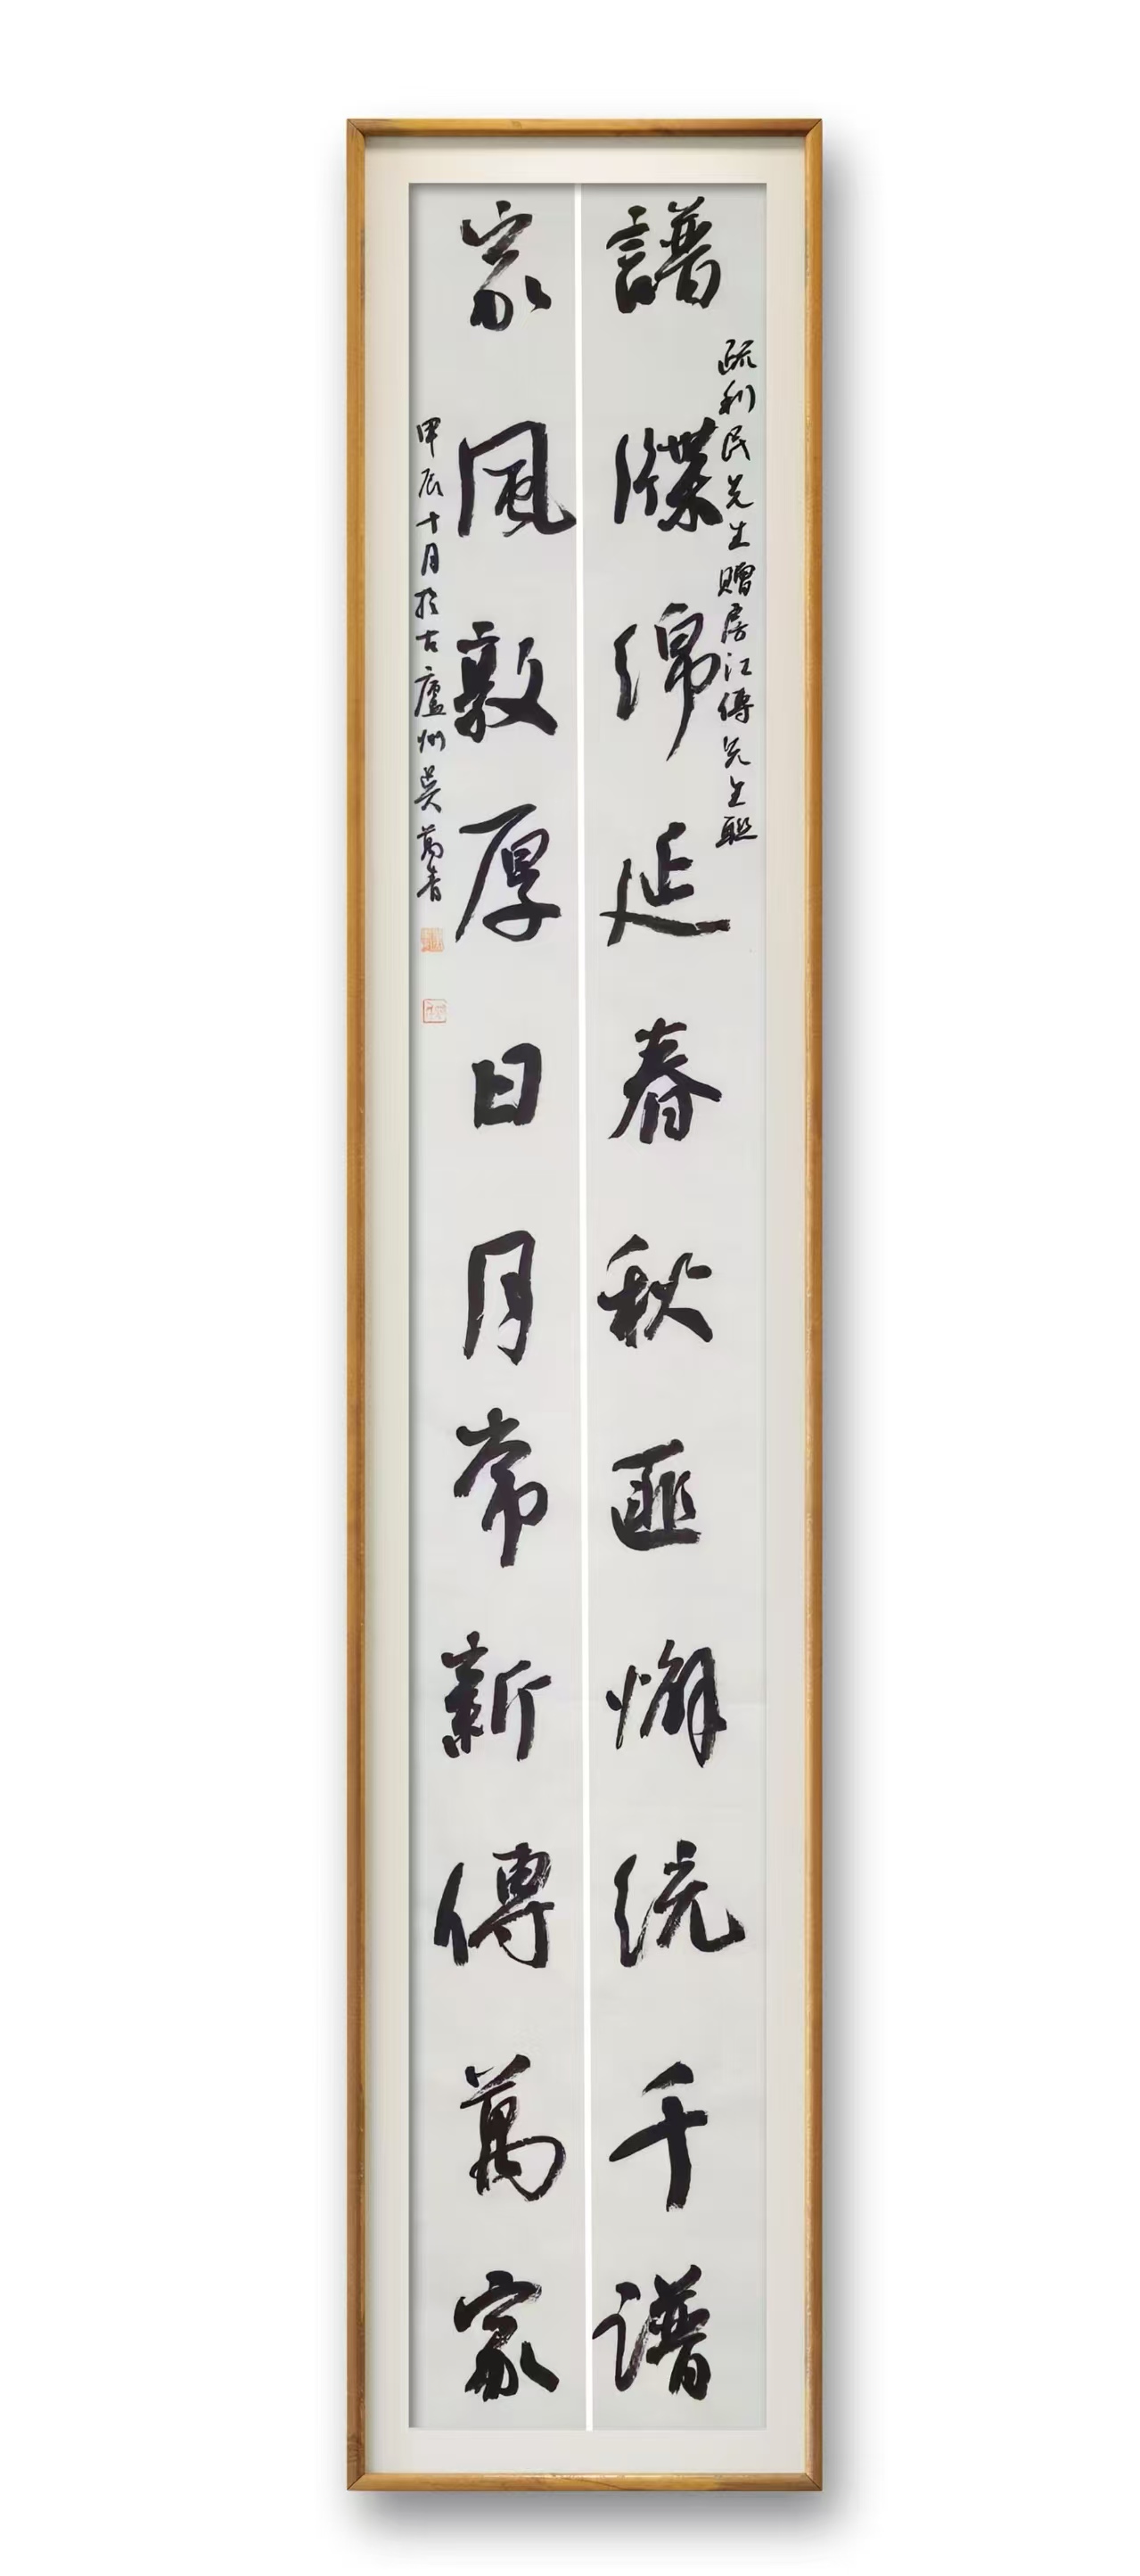 譜牒綿延春秋匪懈统千谱
疏利民先生贈房江傳先生聯
家風敦厚日月常新傳萬家
甲辰十月於古廬州吳萬青